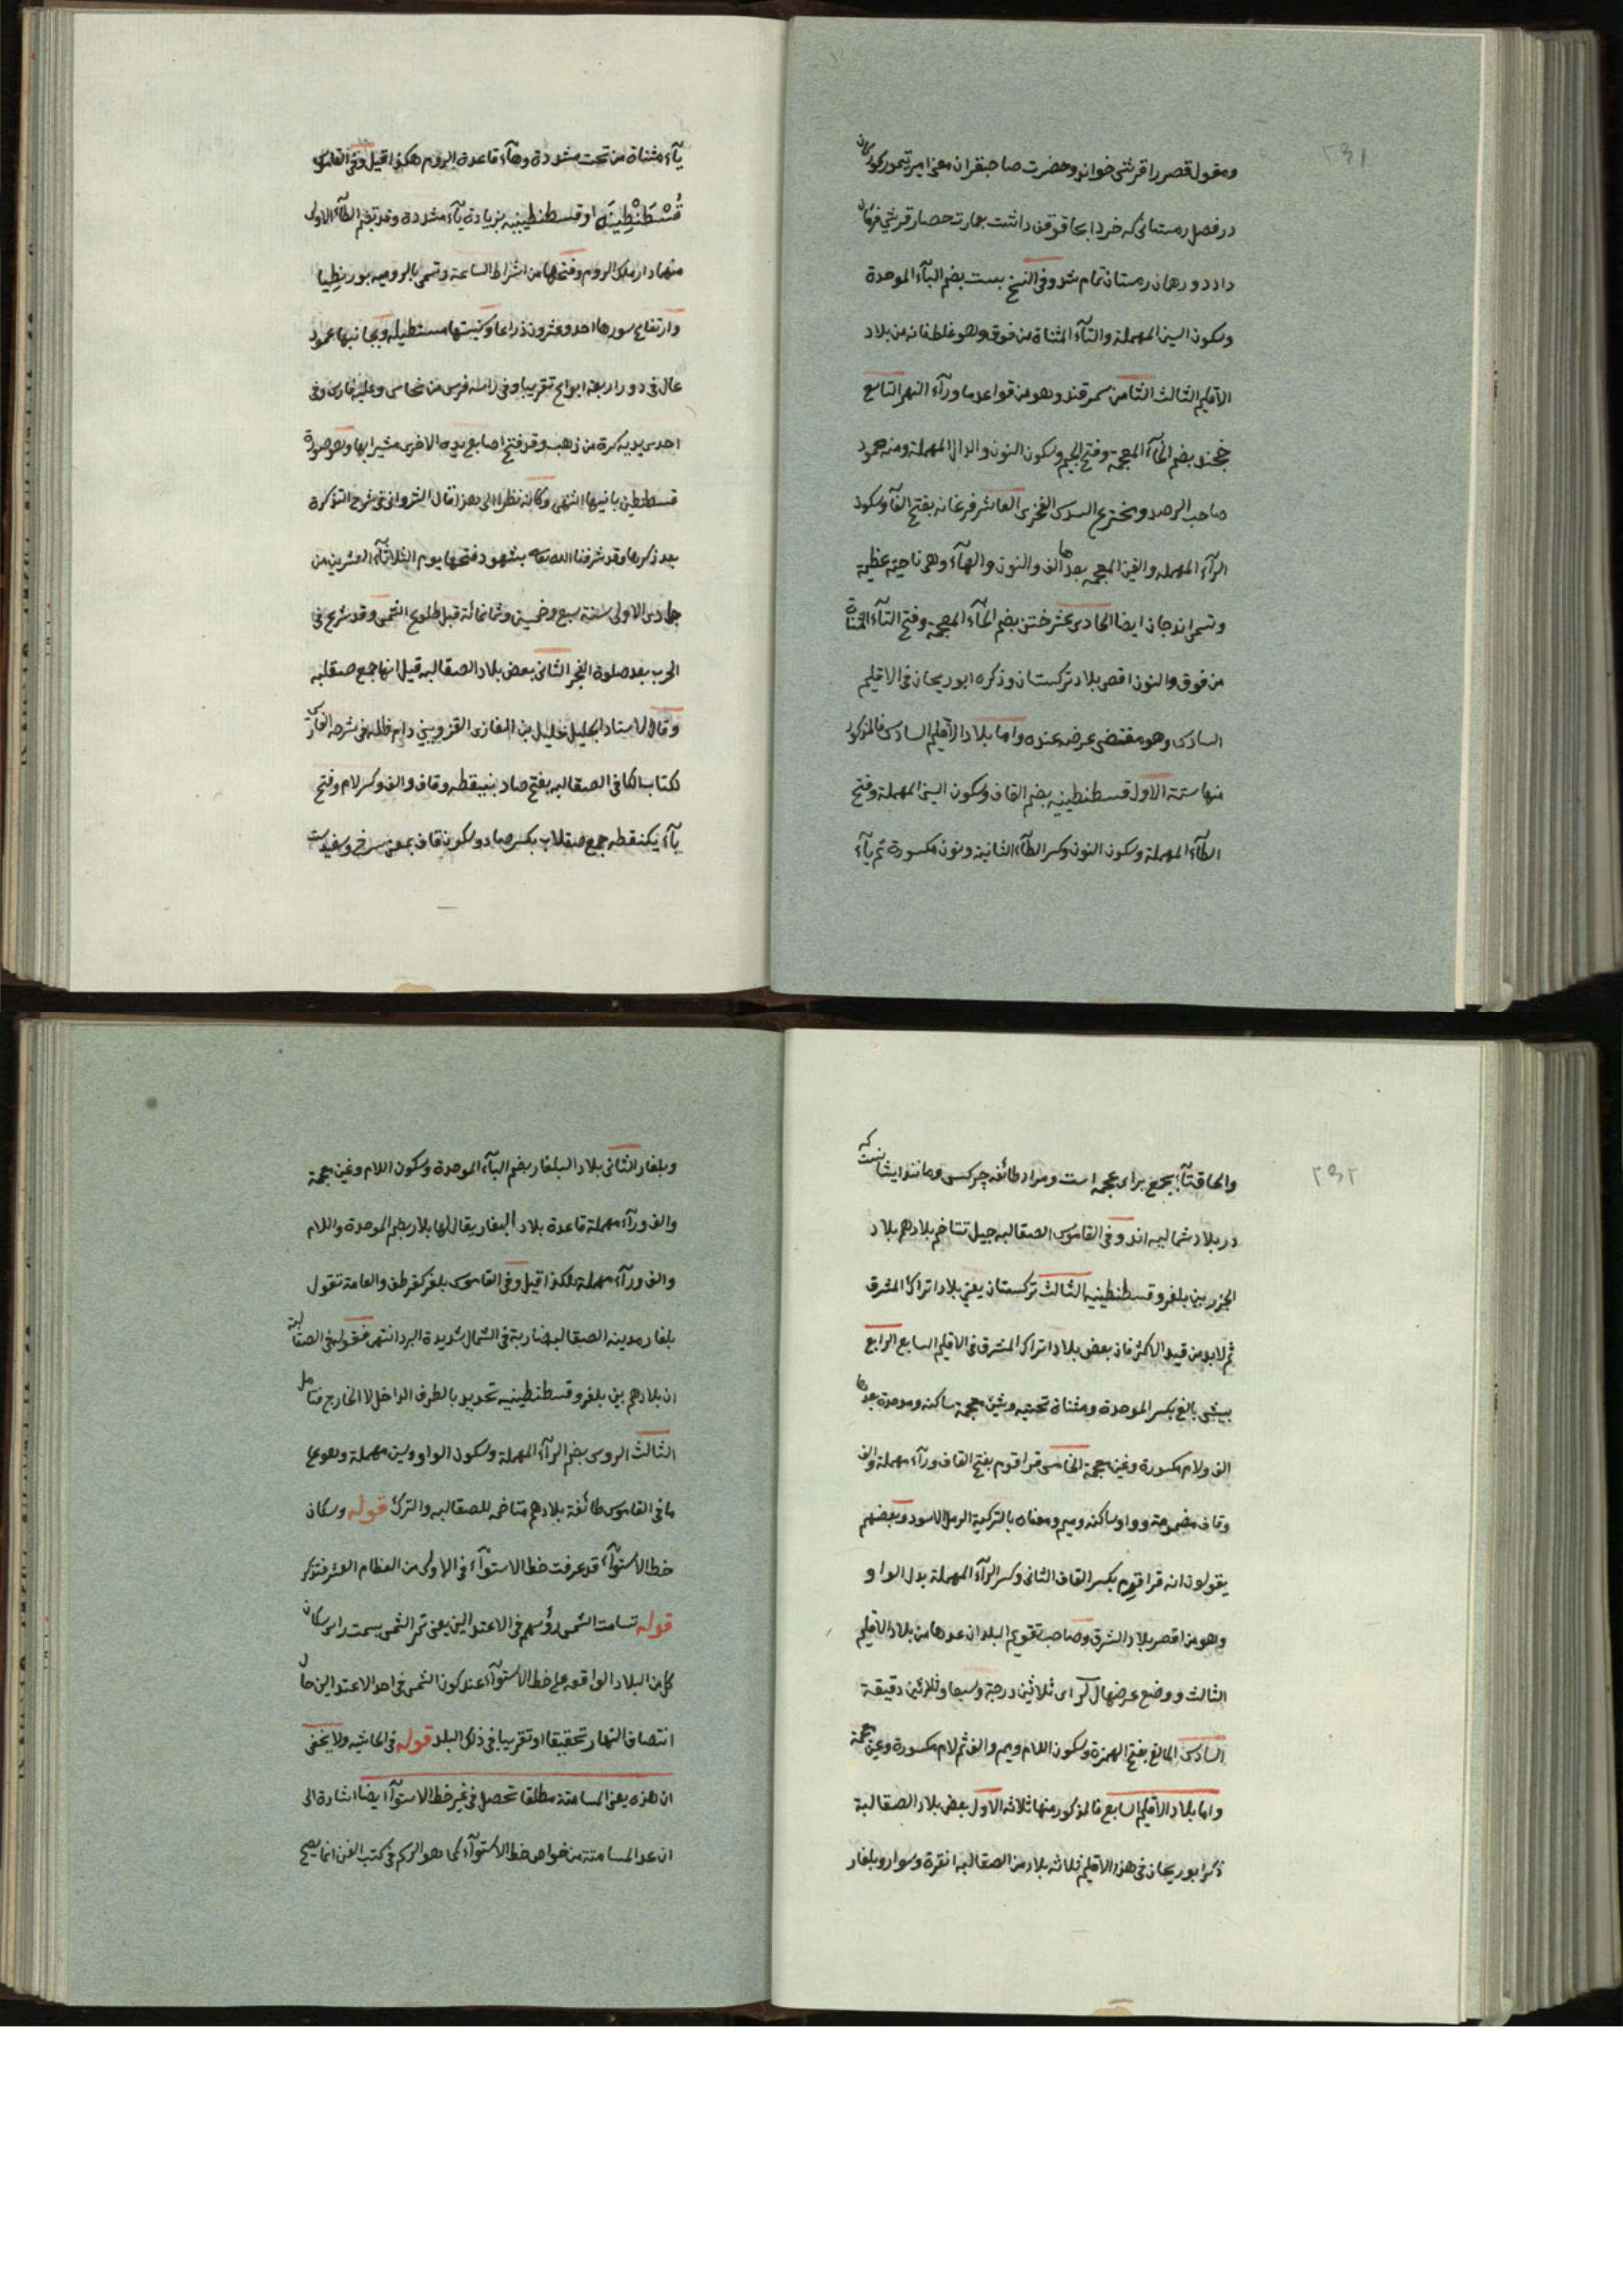 ٢٣١
ومغول قصر را قرشى خوانند وحضرت صاحبقران معنى امير تيمور كوركان
در فصل زمستانى كه خرد ابحا قوقن داشت بعمارت حصار قرشى فرمان
داد دو رهان زمستان تمام شد وفى النسخ بست بضم الباء الموحدة
وسكون السين المهملة والتاء المثناة من فوق وهو غلط فانه من بلاد
الاقليم الثالث الثامن سمرقند وهو من قواعد ما وراء النهر التاسع
خجند بضم الخاء المعجمة وفتح الجيم وسكون النون والدال المهملة ومنه محمود
صاحب الرصد ومخترع السدس الفخرى العاشر فرغانه بفتح الفا وسكون
الراء المهمله والغين المعجمه بعدها الف والنون والهاء وهى ناحية عظيمة
وتسمى اندجان ايضا الحادى عشر ختن بضم الخاء المعجمة وفتح التاء المثناة
من فوق والنون اقصى بلاد تركستان وذكره ابو ريحان فى الاقليم
السادس وهو مقتضى عرضه عنده واما بلاد الاقليم السادس فالمذكور
منها ستة الاول قسطنطينيه بضم القاف وسكون السين المهملة وفتح
الطاء المهملة وسكون النون وكسر الطاء الثانية ونون مكسورة ثم ياء
ياء مثناة من تحت مشددة وهاء قاعدة الروم هكذا قيل وفى القاموس
قُسْطَنْطِينَة او قسطنطينيه بزيادة ياء مشددة وقد تضم الطاء الاولى
منهما دار ملك الروم وفتحها من اشراط الساعة وتسمى بالروميه بورنطيا
وارتفاع سورها احد وعشرون ذراعا وكنيستها مستطيله وبجانبها عمود
عال فى دور اربعة ابواع تقريبا وفى راسه فرس من نحاس وعليه فارس وفى
احدى يديه كرة من ذهب وقد فتح اصابع يده الاخرى مشيرا بها وهو صورة
قسطنطين بانيها انتهى وكانه نظرا الى هذا قال الشروانى فى شرح التذكرة
بعد ذكرها وقد شرفنا الله تعالى بشهود فتحها يوم الثلاثاء العشرين من
جمادى الاولى سنة سبع وخمسين وثمانمائة قبل طلوع الشمس وقد شرع فى
الحرب بعد صلوة الفجر الثانى بعض بلاد الصقالبه قيل انها جمع صقلبه
وقال الاستاد الجليل خليل بن الغازى القزوينى دام ظله فى شرحه الفارسى
لكتاب الكافى الصقالبه بفتح صاد بينقطه وقاف والف وكسر لام وفتح
ياء يكنقطه جمع صقلاب بكسر صاد وسكون قاف بمعنى سرخ وسفيدست
٢٣٢
والحاق تاء بجمع براى عجمه است ومراد طائفه چركس ومانند ايشانست كه
در بلاد شماليه اند وفى القاموس الصقالبه جيل تتاخم بلادهم بلاد
الخزر بين بلغر وقسطنطينيه الثالث تركستان يعنى بلاد اتراك المشرق
ثم لابد من قيد الاكثر فان بعض بلاد اتراك المشرق فى الاقليم السابع الرابع
بيش بالغ بكسر الموحدة ومثناة تحتيه وشين معجمة ساكنه وموحدة بعدها
الف ولام مكسورة وغين معجمة الخامس قراقوم بفتح القاف وراء مهملة والف
وقاف مضمومة وواو ساكنه وميم ومعناه بالتركية الرمل الاسود وبعضهم
يقولون انه قراقرم بكسر القاف الثانى وكسر الراء المهملة بدل الواو
وهو من اقصى بلاد الشرق وصاحب تقويم البلدان عدها من بلاد الاقليم
الثالث ووضع عرضها ل لز اى ثلاثين درجة وسبعا وثلاثين دقيقة
السادس المالغ بفتح الهمزة وسكون اللام وميم والف ثم لام مكسورة وغين معجمة
واما بلاد الاقليم السابع فالمذكور منها ثلاثه الاول بعض بلاد الصقالبة
ذكر ابو ريحان فى هذا الاقليم ثلاثه بلاد من الصقالبه انقرة وسوار وبلغار
وبلغار الثانى بلاد البلغار بضم الباء الموحدة وسكون اللام وغين معجمة
والف وراء مهملة قاعدة بلاد البلغار يقال لها بلار بضم الموحدة واللام
والف وراء مهملة هكذا قيل وفى القاموس بلغر كقرطق والعامة تقول
بلغار مدينه الصقالبه ضاربة فى الشمال شديدة البرد انتهى فقوله فى الصقالبة
ان بلادهم بين بلغر وقسطنطينيه تحديد بالطرف الداخل لا الخارج فتامل
الثالث الروس بضم الراء المهملة وسكون الواو وسين مهملة وهو على
ما فى القاموس طائفة بلادهم متاخمه للصقالبه والترك قوله وسكان
خط الاستواء قد عرفت خط الاستواء فى الاولى من العظام العشر فتذكر
قوله تسامت الشمس رؤسهم فى الاعتدالين يعنى تمر الشمس بسمت راس سكان
كل من البلاد الواقعه على خط الاستواء عند كون الشمس فى احد الاعتدالين حال
انتصاف النهار تحقيقا او تقريبا فى ذلك البلد قوله فى الحاشيه ولا يخفى
ان هذه يعنى المسامتة مطلقا تحصل فى غير خط الاستواء ايضا اشارة الى
ان عد المسامتة من خواص خط الاستواء كما هو الرسم فى كتب الفن انما يصح